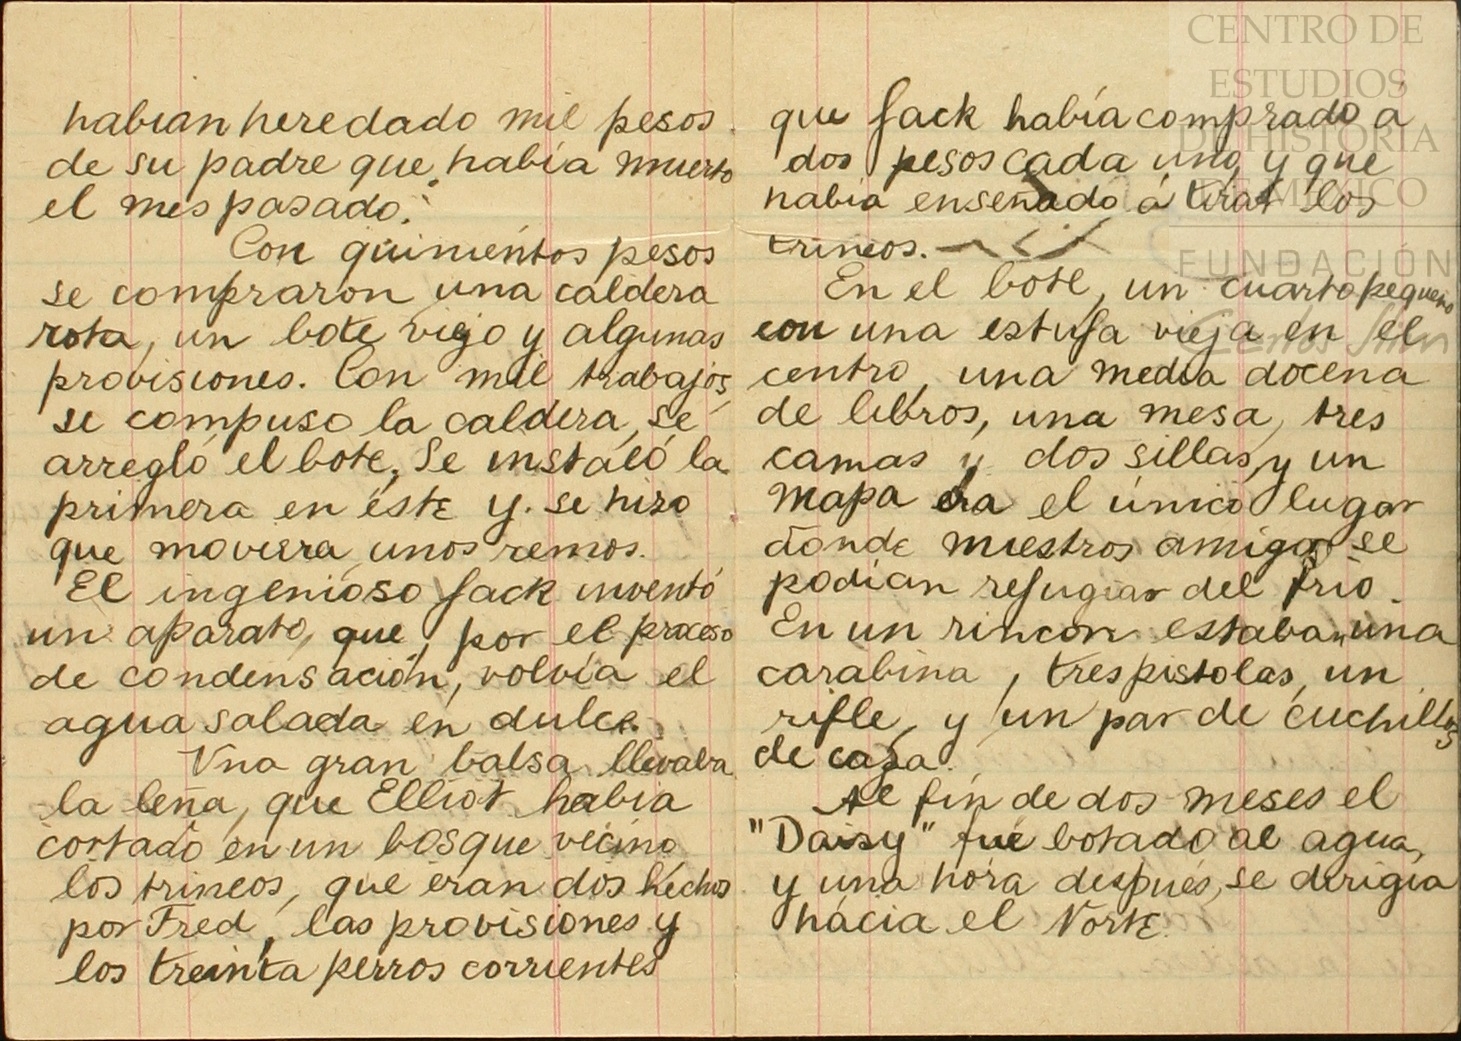 habian heredado mil pesos
de su padre que había muerto
el mes pasado.
Con quinientos pesos
se compraron una caldera
rota, un bote viejo y algunas
provisiones. Con mil trabajos,
se compuso la caldera, se
arregló el bote, Se instaló la
primera en éste y se hizo
que moviera unos remos.
El ingenioso Jack inventó
un aparato, que, por el proceso
de condensación, volvía el
agua salada en dulce.
Una gran balsa llevaba
la leña, que Elliot habia
cortado en un bosque vecino
los trineos, que eran dos hechos
por Fred, las provisiones y
los treinta perros corrientes
que Jack había comprado á
dos pesos cada uno, y que
habia enseñado á tirar los
trineos.
En el bote, un cuarto pequeño
con una estufa vieja en el
centro, una media docena
de libros, una mesa, tres
camas y dos sillas, y un
mapa era el único lugar
donde nuestros amigos se
podían refugiar del frio.
En un rincon estaban una
carabina, tres pistolas, un
rifle, y un par de cuchillos
de caza.
Al fín de dos meses el
"Daisy" fué botado al agua,
y una hora después, se dirigía
hácia el Norte.
CENTRO DE
ESTUDIOS
DE HISTORIA
DE MÉXICO
FUNDACIÓN
Carlos Slim